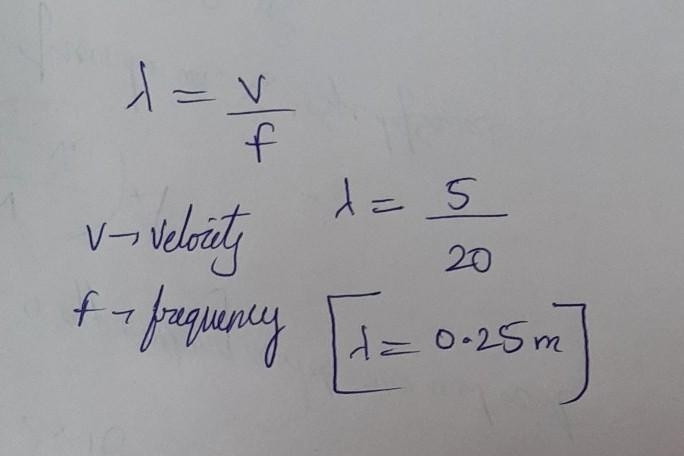 λ = v/f
v → velocity
f → frequency
λ = 5/20
[λ = 0.25 m]